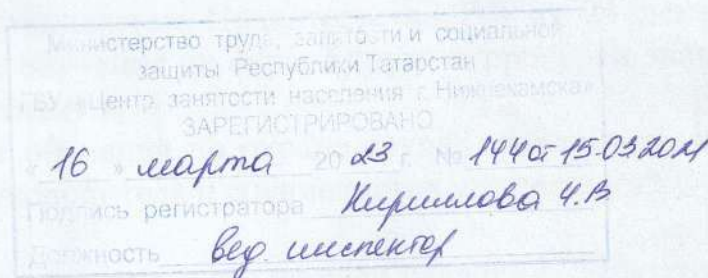 Министерство труда, занятости и социальной
защиты Республики Татарстан
ГБУ «Центр занятости населения г. Нижнекамска»
ЗАРЕГИСТРИРОВАНО
« 16 » марта 20 23 г. № 144 от 15.03.2021
Подпись регистратора Кириллова Ч.В
Должность вед. инспектор